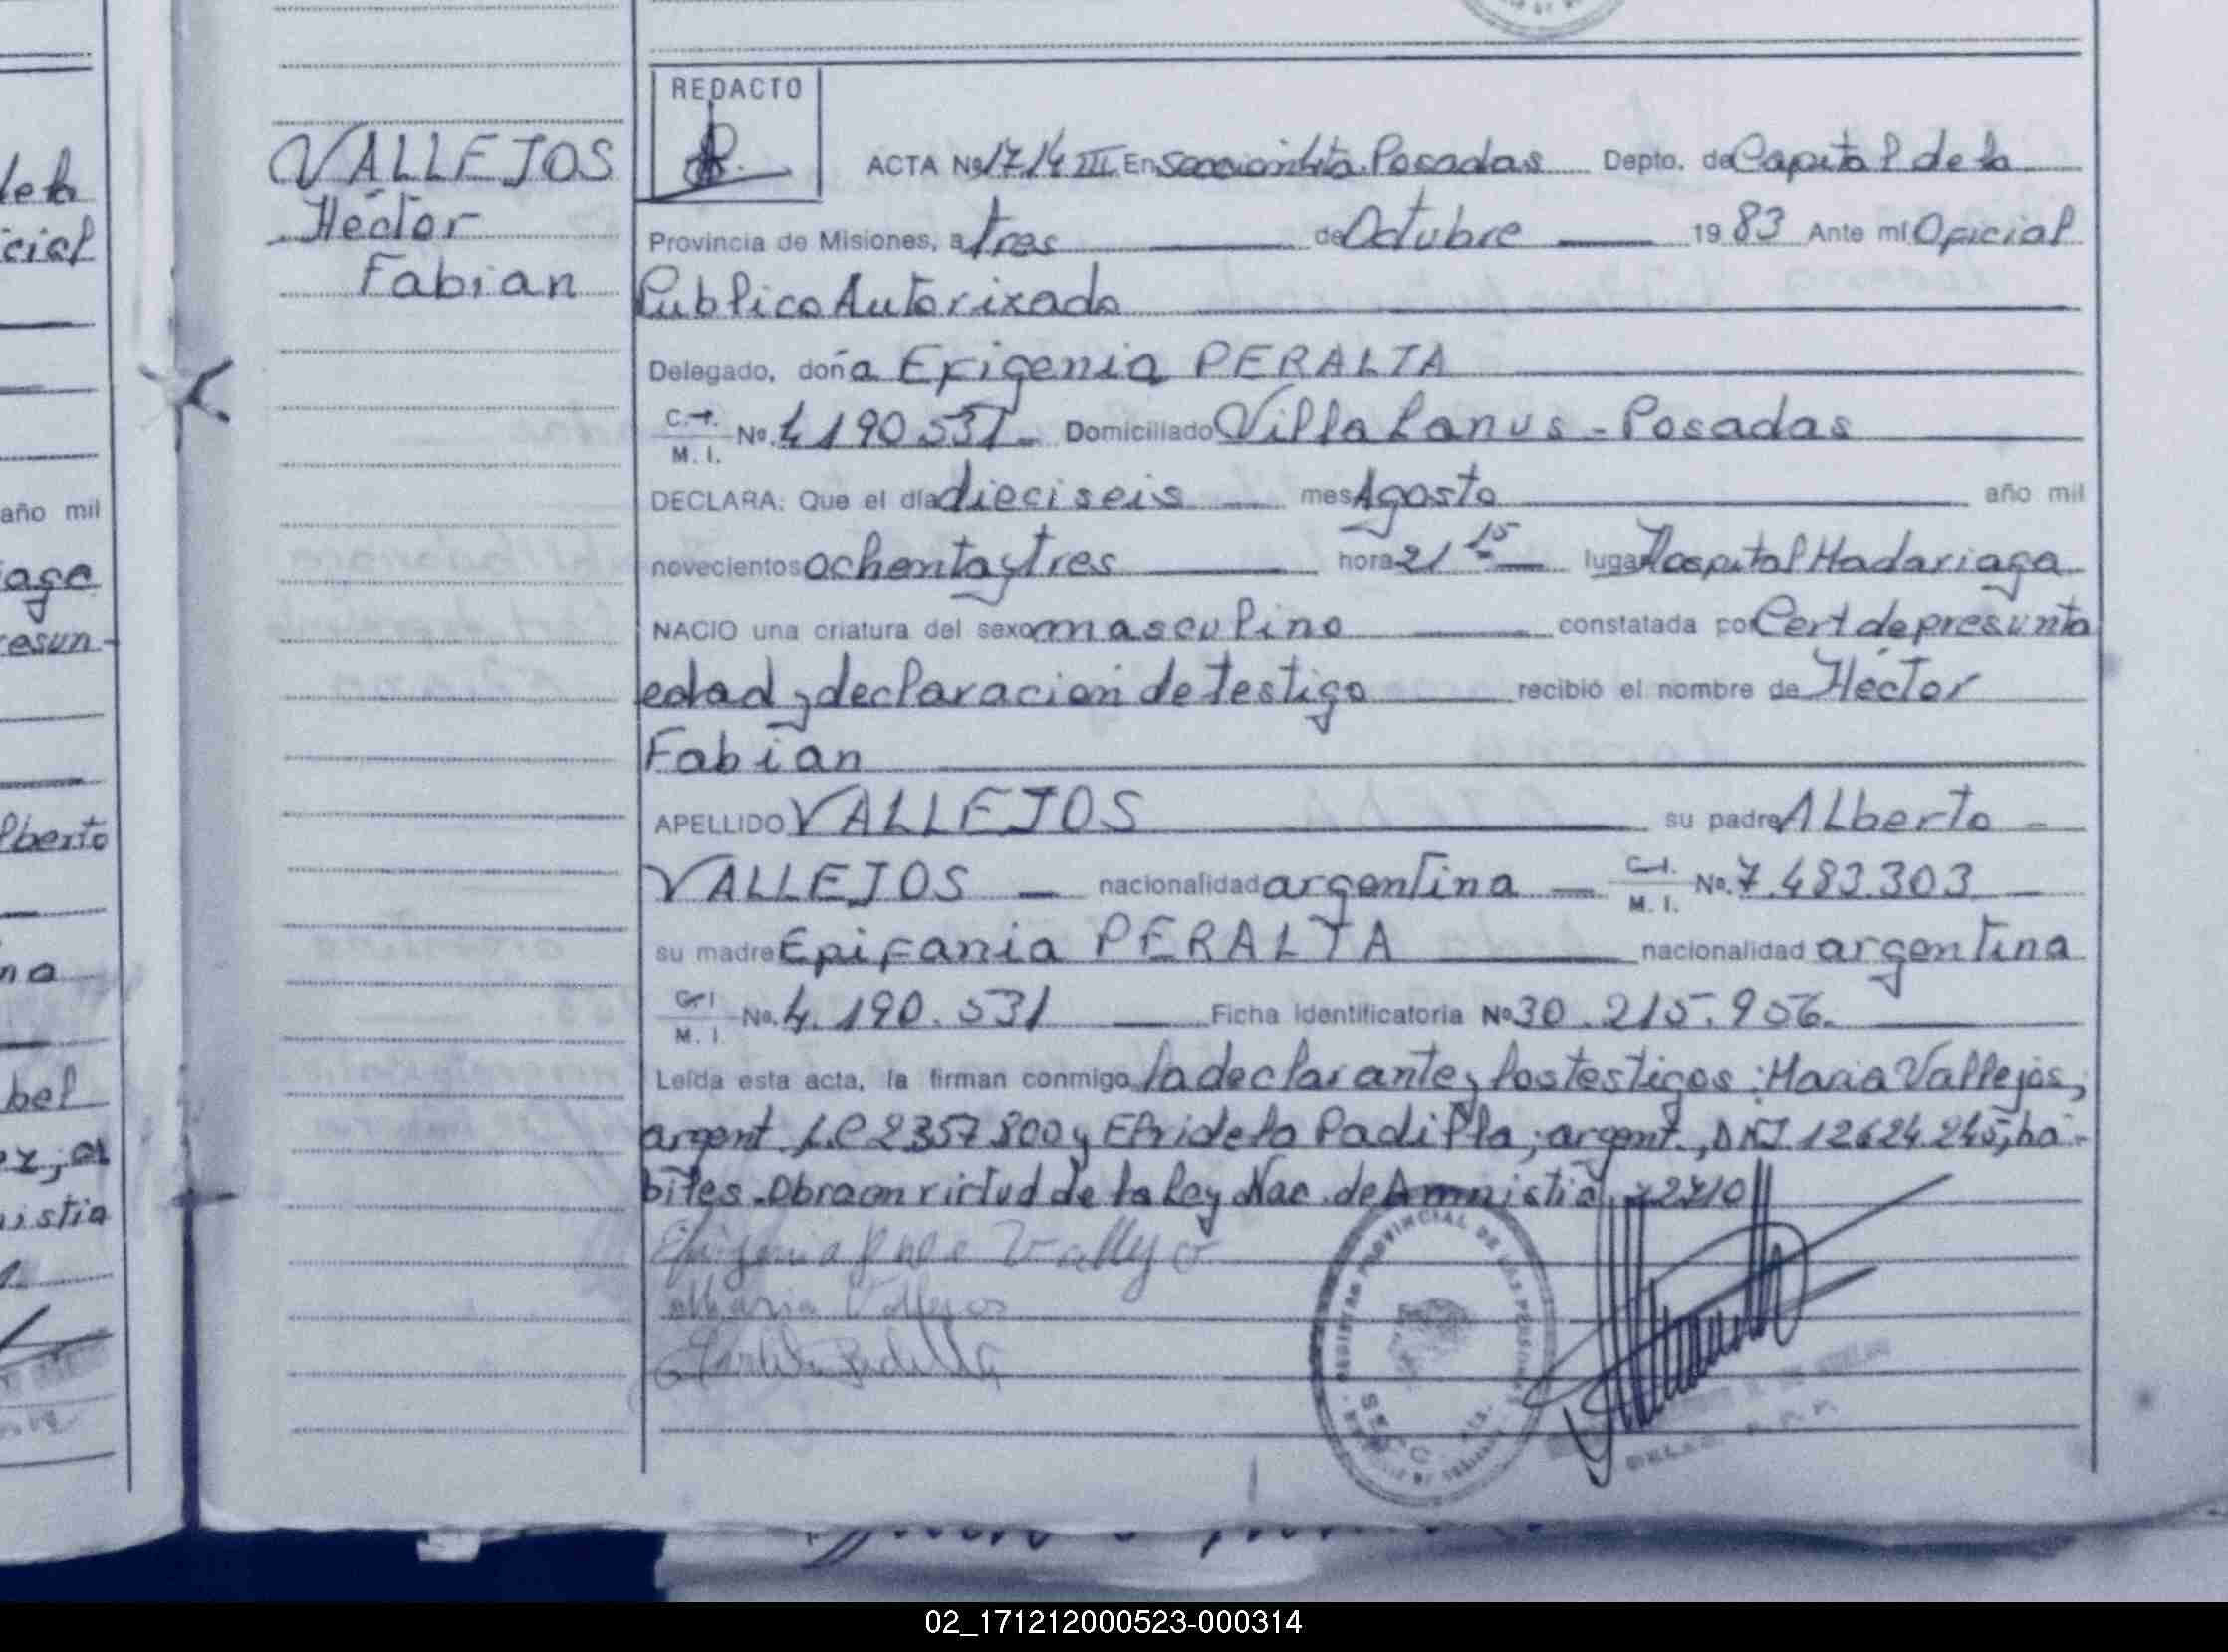 REDACTO
VALLEJOS
Héctor
Fabian
ACTA Nº 1714 III En Sección 4ta. Posadas Depto. de Capital de la
Provincia de Misiones, a tres de Octubre 1983 Ante mí Oficial
Publico Autorizado
Delegado, doña Efigenia PERALTA
C.I. M.I. Nº. 4190531 Domiciliado Villa Lanus - Posadas
DECLARA: Que el día dieciseis mes Agosto año mil
novecientos ochenta y tres hora 21 15 lugar Hospital Madariaga
NACIO una criatura del sexo masculino constatada por Cert de presunta
edad y declaracion de testigo recibió el nombre de Héctor
Fabian
APELLIDO VALLEJOS su padre Alberto
VALLEJOS nacionalidad argentina C.I. M.I. Nº. 7.483.303
su madre Epifania PERALTA nacionalidad argentina
C.I. M.I. Nº. 4.190.531 Ficha Identificatoria Nº 30.215.956.
Leída esta acta, la firman conmigo la declarante y los testigos: Maria Vallejos,
argent. L.C 2357800 y Padilla, argent., DNI 12624245, ha-
biles. Obra en virtud de la Ley Nac. de Amnistia, 22710
Maria Vallejos
Padilla
REGISTRO PROVINCIAL DE LAS PERSONAS
año mil
esun-
lberto
bel
istia
02_171212000523-000314